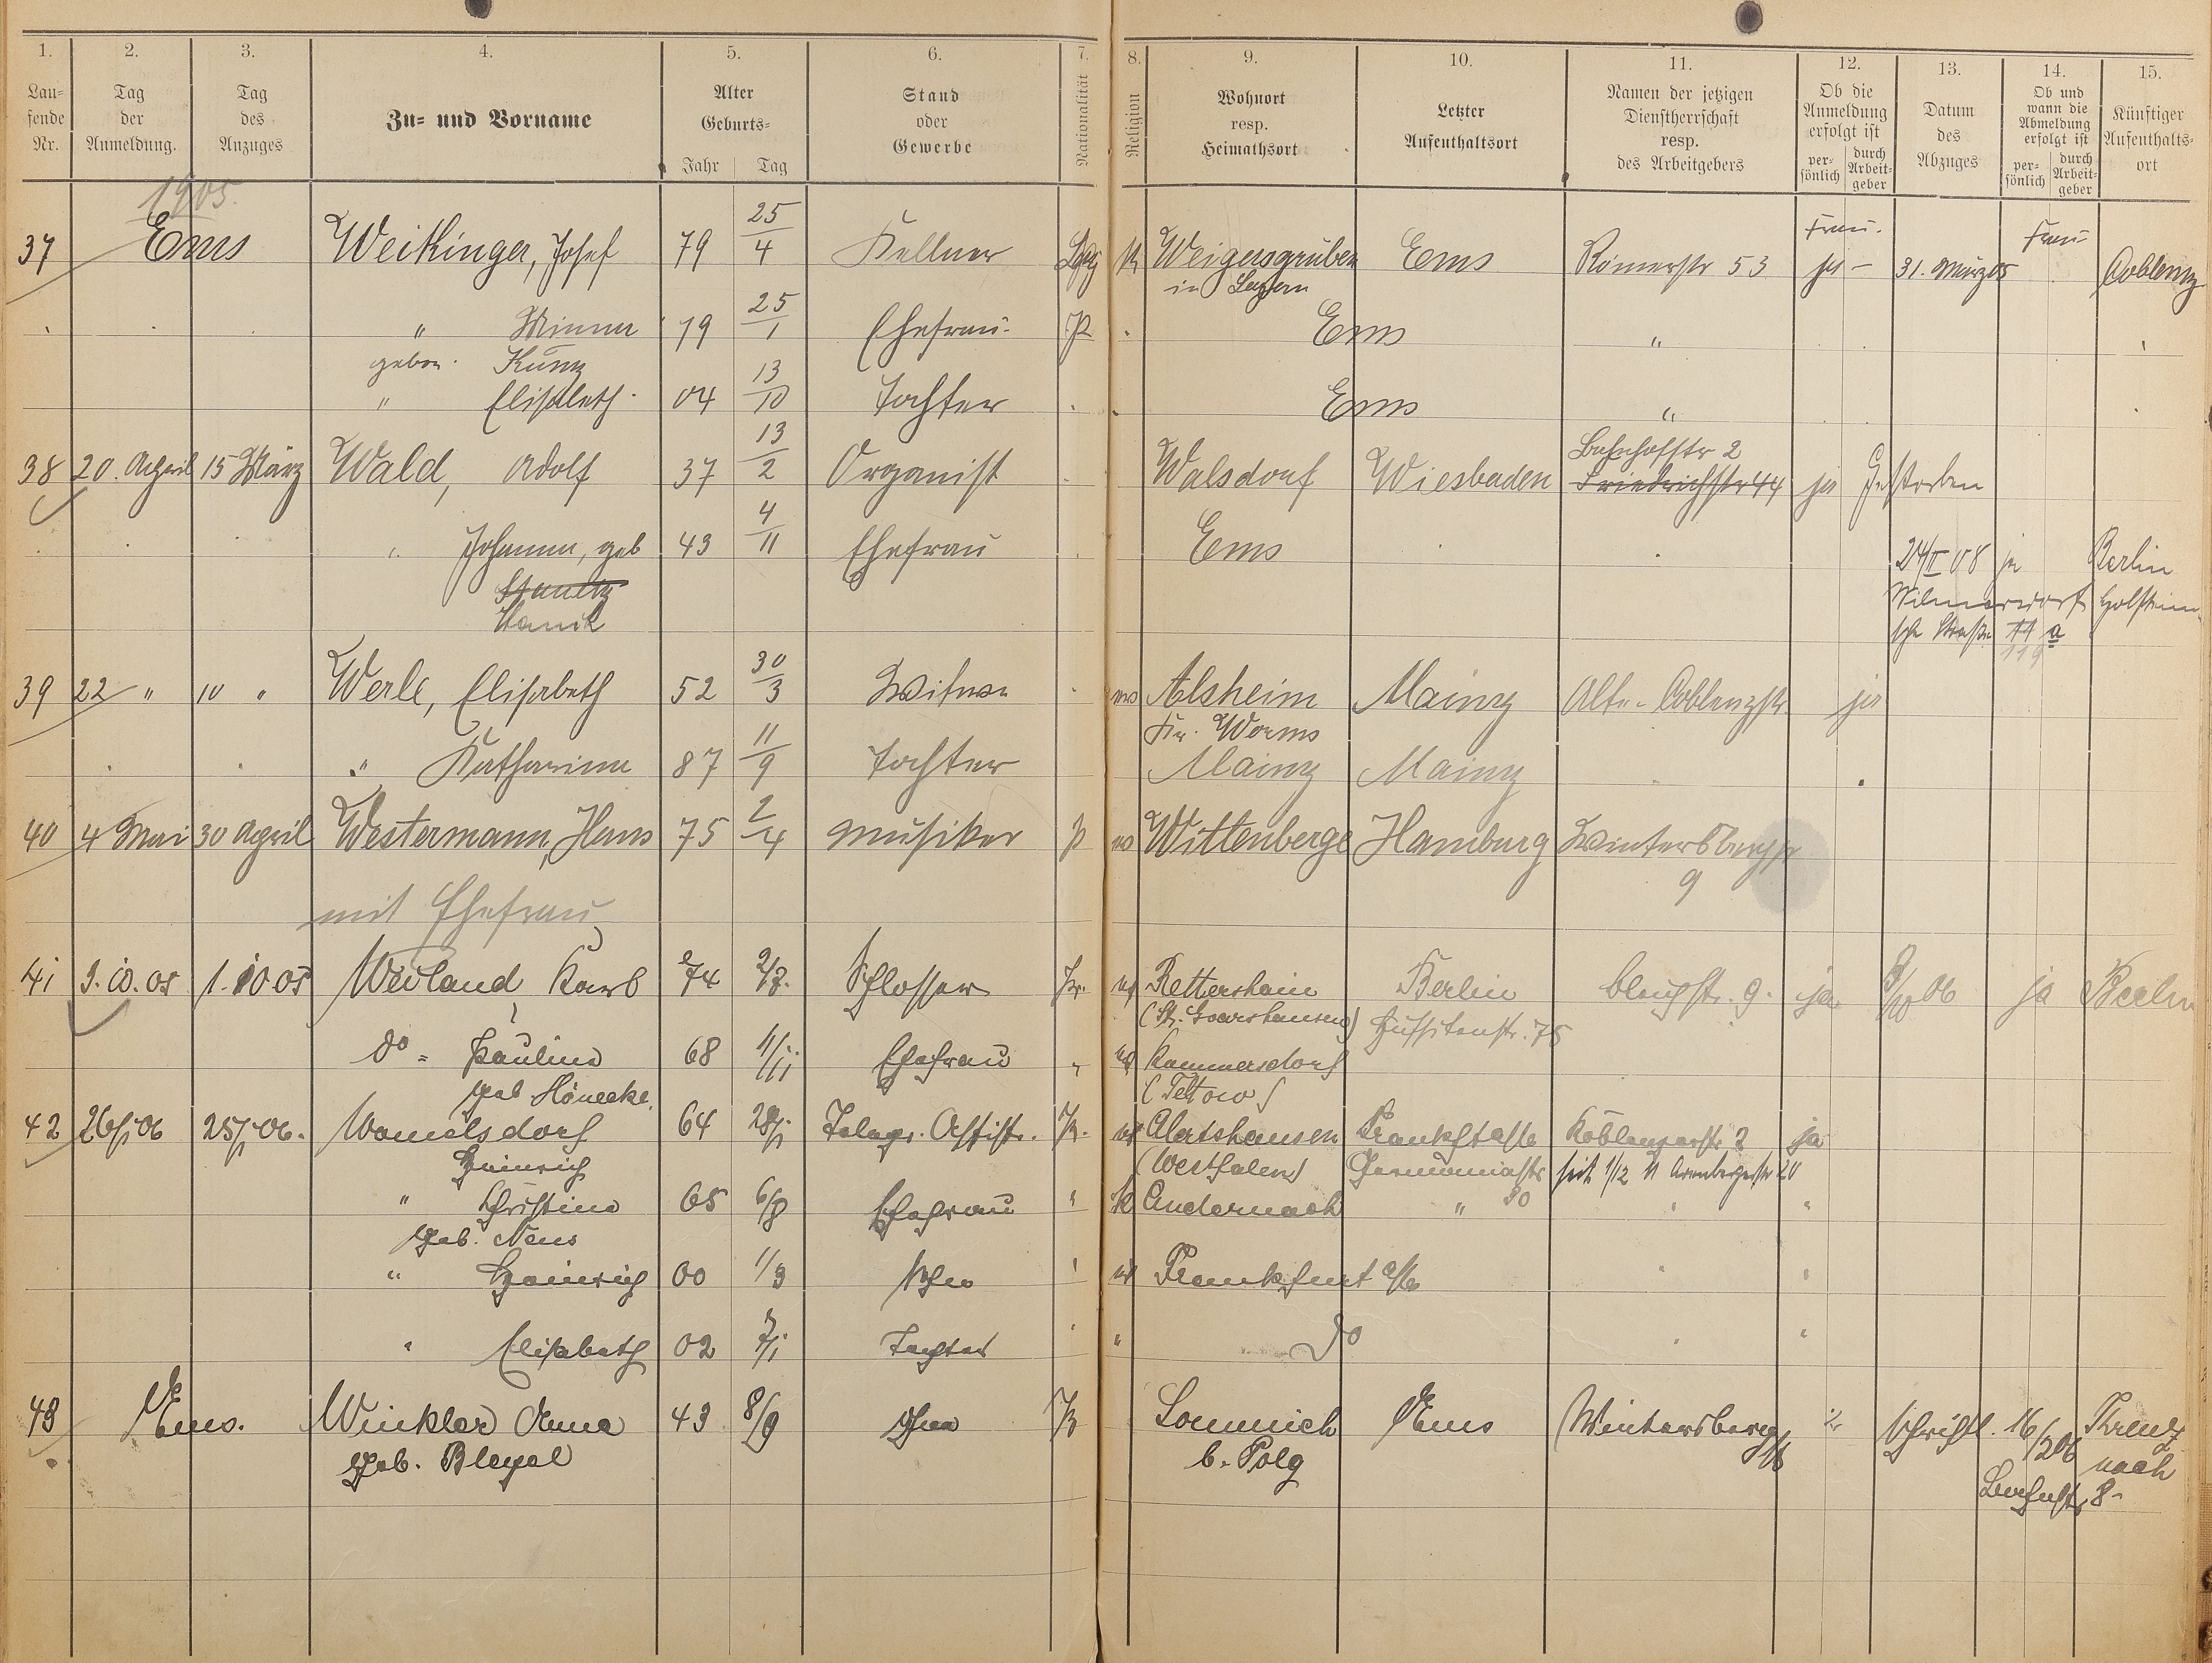 1. 2. 3. 4. 5. 6. 7. 8. 9. 10. 11. 12. 13. 14. 15.
Lau=
fende
Nr.
Tag
der
Anmeldung.
Tag
des
Anzuges
Zu= und Vorname
Alter
Geburts=
Jahr Tag
Stand
oder
Gewerbe
Nationalität
Religion
Wohnort
resp.
Heimathsort
Letzter
Aufenthaltsort
Namen der jetzigen
Dienstherrschaft
resp.
des Arbeitgebers
Ob die
Anmeldung
erfolgt ist
per=
sönlich
durch
Arbeit=
geber
Datum
des
Abzuges
Ob und
wann die
Abmeldung
erfolgt ist
per=
sönlich
durch
Arbeit=
geber
Künftiger
Aufenthalts=
ort
1905.
37 Ems Weikinger, Josef 79 25/4 Kellner k Weigersgruben Ems Römerstr 53 Frau. ja - 31. März 05 Frau Coblenz
in Bayern
" Minna 79 25/1 Ehefrau Pr . Ems "
gebor. Kunz
" Elisabeth 04 13/10 Tochter . . Ems "
38 20. April 15 März Wald, Adolf 37 13/2 Organist . Walsdorf Wiesbaden Bahnhofstr 2 ja Gestorben
Friedrichstr 44
" Johanna, geb 43 4/11 Ehefrau . Ems . . 24/II 08 ja Berlin
Wilmersdorf Holstein
sche Straße 11 a
119
39 22 " 10 " Werle, Elisabeth 52 30/3 Witwe . ev Alsheim Mainz Alte-Coblenzstr. ja
Kr. Worms
" Katharina 87 11/9 Tochter Mainz Mainz . .
40 4 Mai 30 April Westermann, Hans 75 2/4 Musiker p ev Wittenberge Hamburg Wintersbergstr
9
mit Ehefrau
41 3.10.05 1.10.05 Weiland, Karl 74 Schlosser Pr. ev Rettershain Berlin 9. ja 06 ja Berlin
(St. Goarshausen) Hussitenstr. 75
do = Pauline 68 11/11 Ehefrau " ev Kummersdorf
geb Hönecke. (Teltow)
42 26/1 06 25/1 06. Womelsdorf 64 28/1 Telegr. Assist. Pr. ev Frankf a/M Koblenzerstr 2 ja
Heinrich (Westfalen) Germaniastr seit 1/12 11 Arenbergerstr 20
" Christine 65 6/8 Ehefrau " k Andernach " 30 " "
geb. Neus
" Heinrich 00 1/3 Sohn " ev Frankfurt a/M " "
" Elisabeth 02 7/1 Tochter " " do " "
43 Ems. Winkler Anna 43 8/9 Pr Ems Wintersberg schriftl. 16/2 06 Kreuz
geb. Bleyel nach
Luisenstr 8-